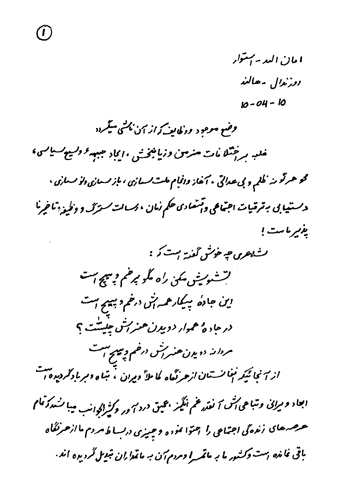 ۱
امان الله - استوار
روزندال - هالند
10-04-10
وضع موجود و وظایف که از آن ناشی میگردد
غلبه بر اختلافات مزمن و زیانبخش، ایجاد جبههء وسیع سیاسی،
محو هرگونه ظلم و بی عدالتی، آغاز و انجام ملت سازی، بازسازی و نوسازی،
دستیابی به ترقیات اجتماعی و اقتصادی حکم زمان، رسالت سترگ و وظیفهٔ تاخیرنا
پذیر ماست!
شاعری چه خوش گفته است که:
تشویش مکن راه مگو پرخم و پیچ است
این جادهٔ پیکار همه اش در خم و پیچ است
در جادهٔ هموار دویدن هنرش چیست؟
مردانه دویدن هنرش در خم و پیچ است
از آنجائیکه افغانستان از هر نگاه کاملاً ویران، تباه و برباد گردیده است
ابعاد ویرانی و تباهی اش آنقدر غم انگیز، عمیق، درد آور و کثیرالجوانب میباشد که تمام
عرصه های زندگی اجتماعی را احتوا نموده و چیزی در بساط مردم ما از هر نگاه
باقی نمانده است و کشور ما به ماتمسرا و مردم آن به ماتمداران تبدیل گردیده اند.